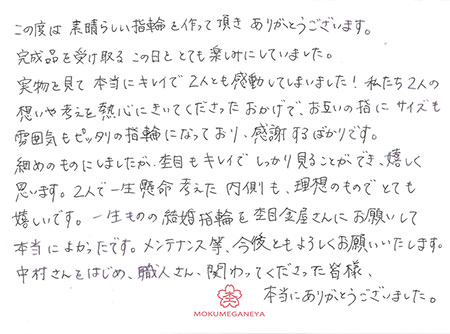 この度は 素晴らしい指輪を作って頂き ありがとうございます。
完成品を受け取る この日を とても楽しみにしていました。
実物を見て 本当にキレイで 2人とも感動してしまいました！私たち2人の
想いや考えを熱心にきいてくださった おかげで、お互いの指に サイズも
雰囲気も ピッタリの指輪になっており、感謝するばかりです。
細めのものにしましたが、杢目もキレイで しっかり見ることができ、嬉しく
思います。2人で一生懸命 考えた 内側も、理想のもので とても
嬉しいです。一生ものの 結婚指輪を 杢目金屋さんに お願いして
本当に よかったです。メンテナンス等、今後ともよろしくお願いいたします。
中村さんをはじめ、職人さん、関わってくださった皆様、
本当にありがとうございました。
MOKUMEGANEYA